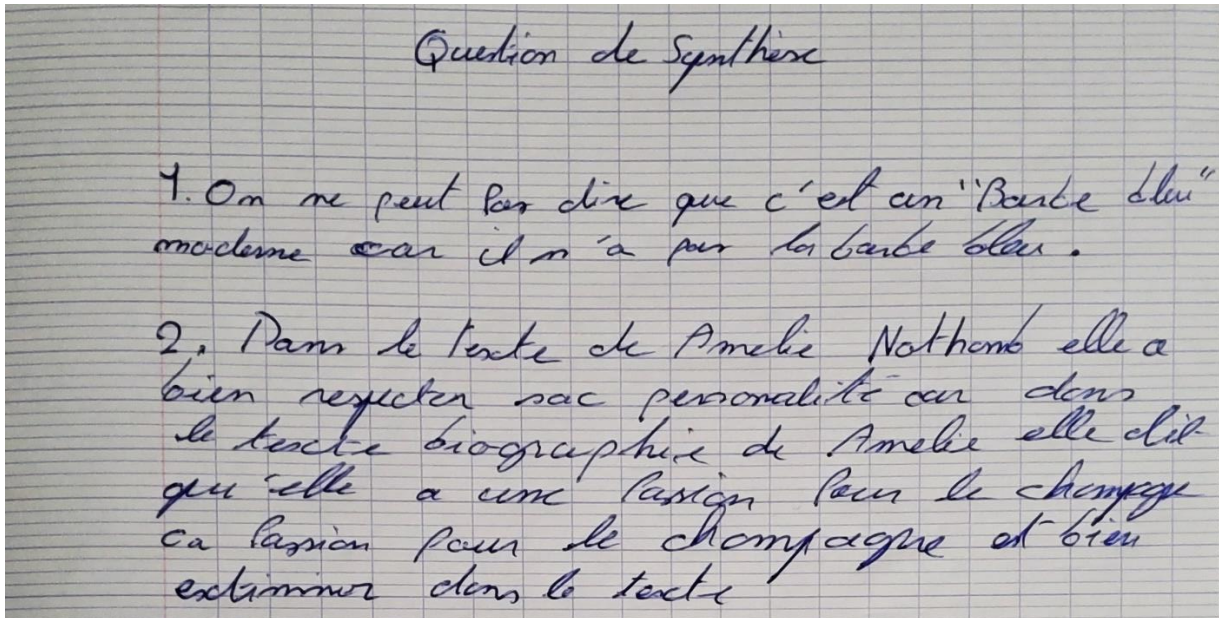 Question de Synthèse
1. On ne peut pas dire que c'est un "Barbe bleu"
moderne car il n'a pas la barbe bleu.
2. Dans le texte de Amelie Nothomb elle a
bien respecter sac personalité car dans
le texte biographie de Amelie elle dit
qu'elle a une passion pour le champagne
ca passion pour le champagne et bien
dans le texte